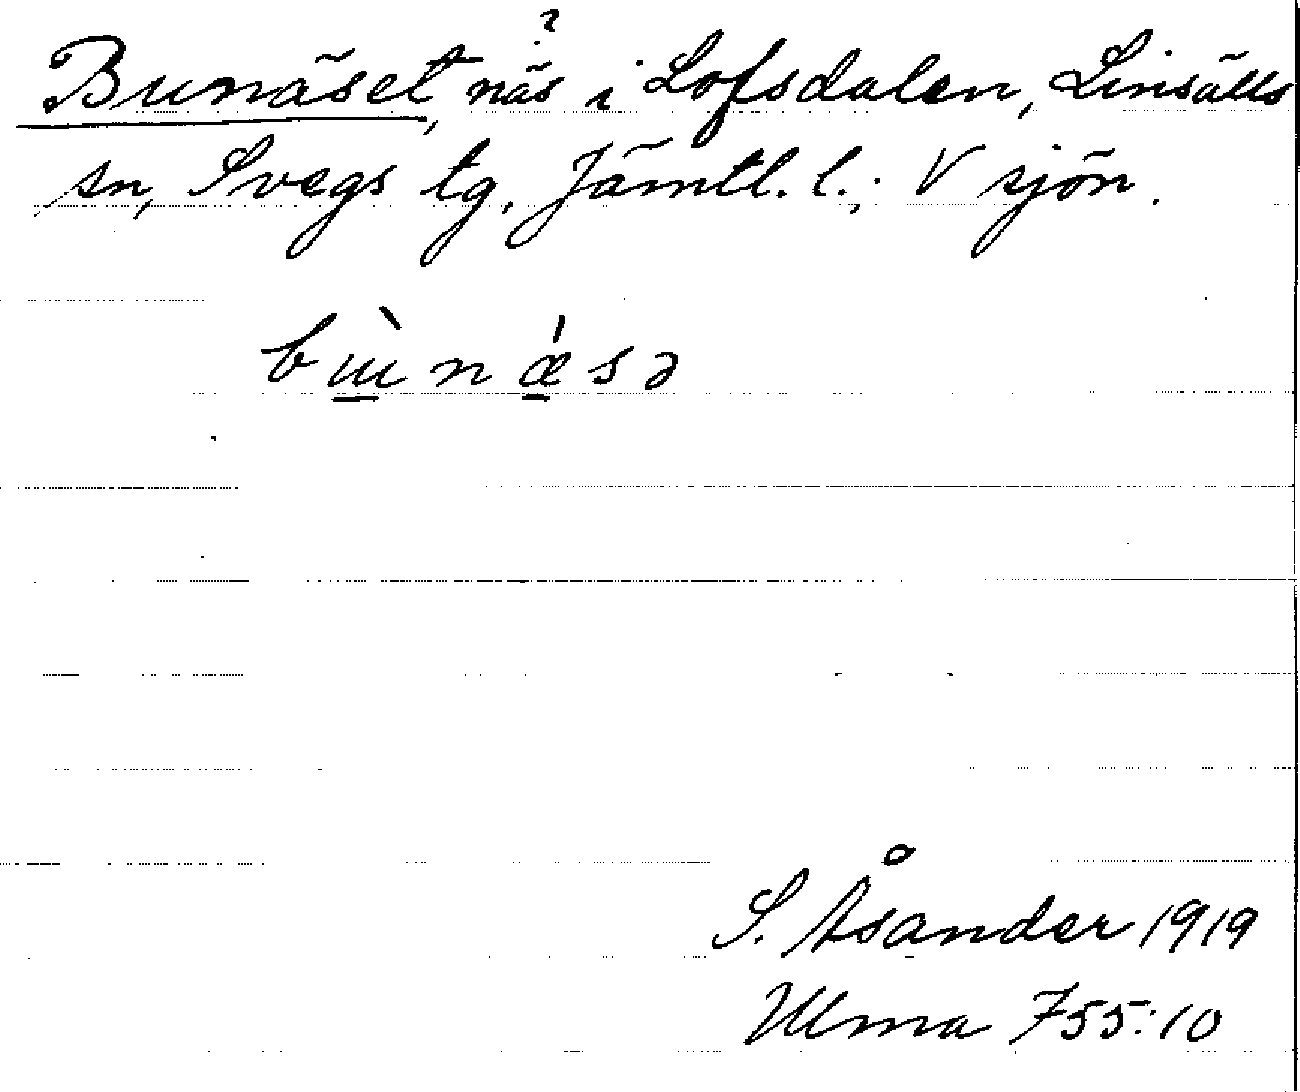 ?
Bunäset, näs i Lofsdalen, Linsälls
sn, Svegs tg, Jämtl. l.; V sjön.
bɯ̀nǽsə
S. Åsander 1919
Ulma 755:10